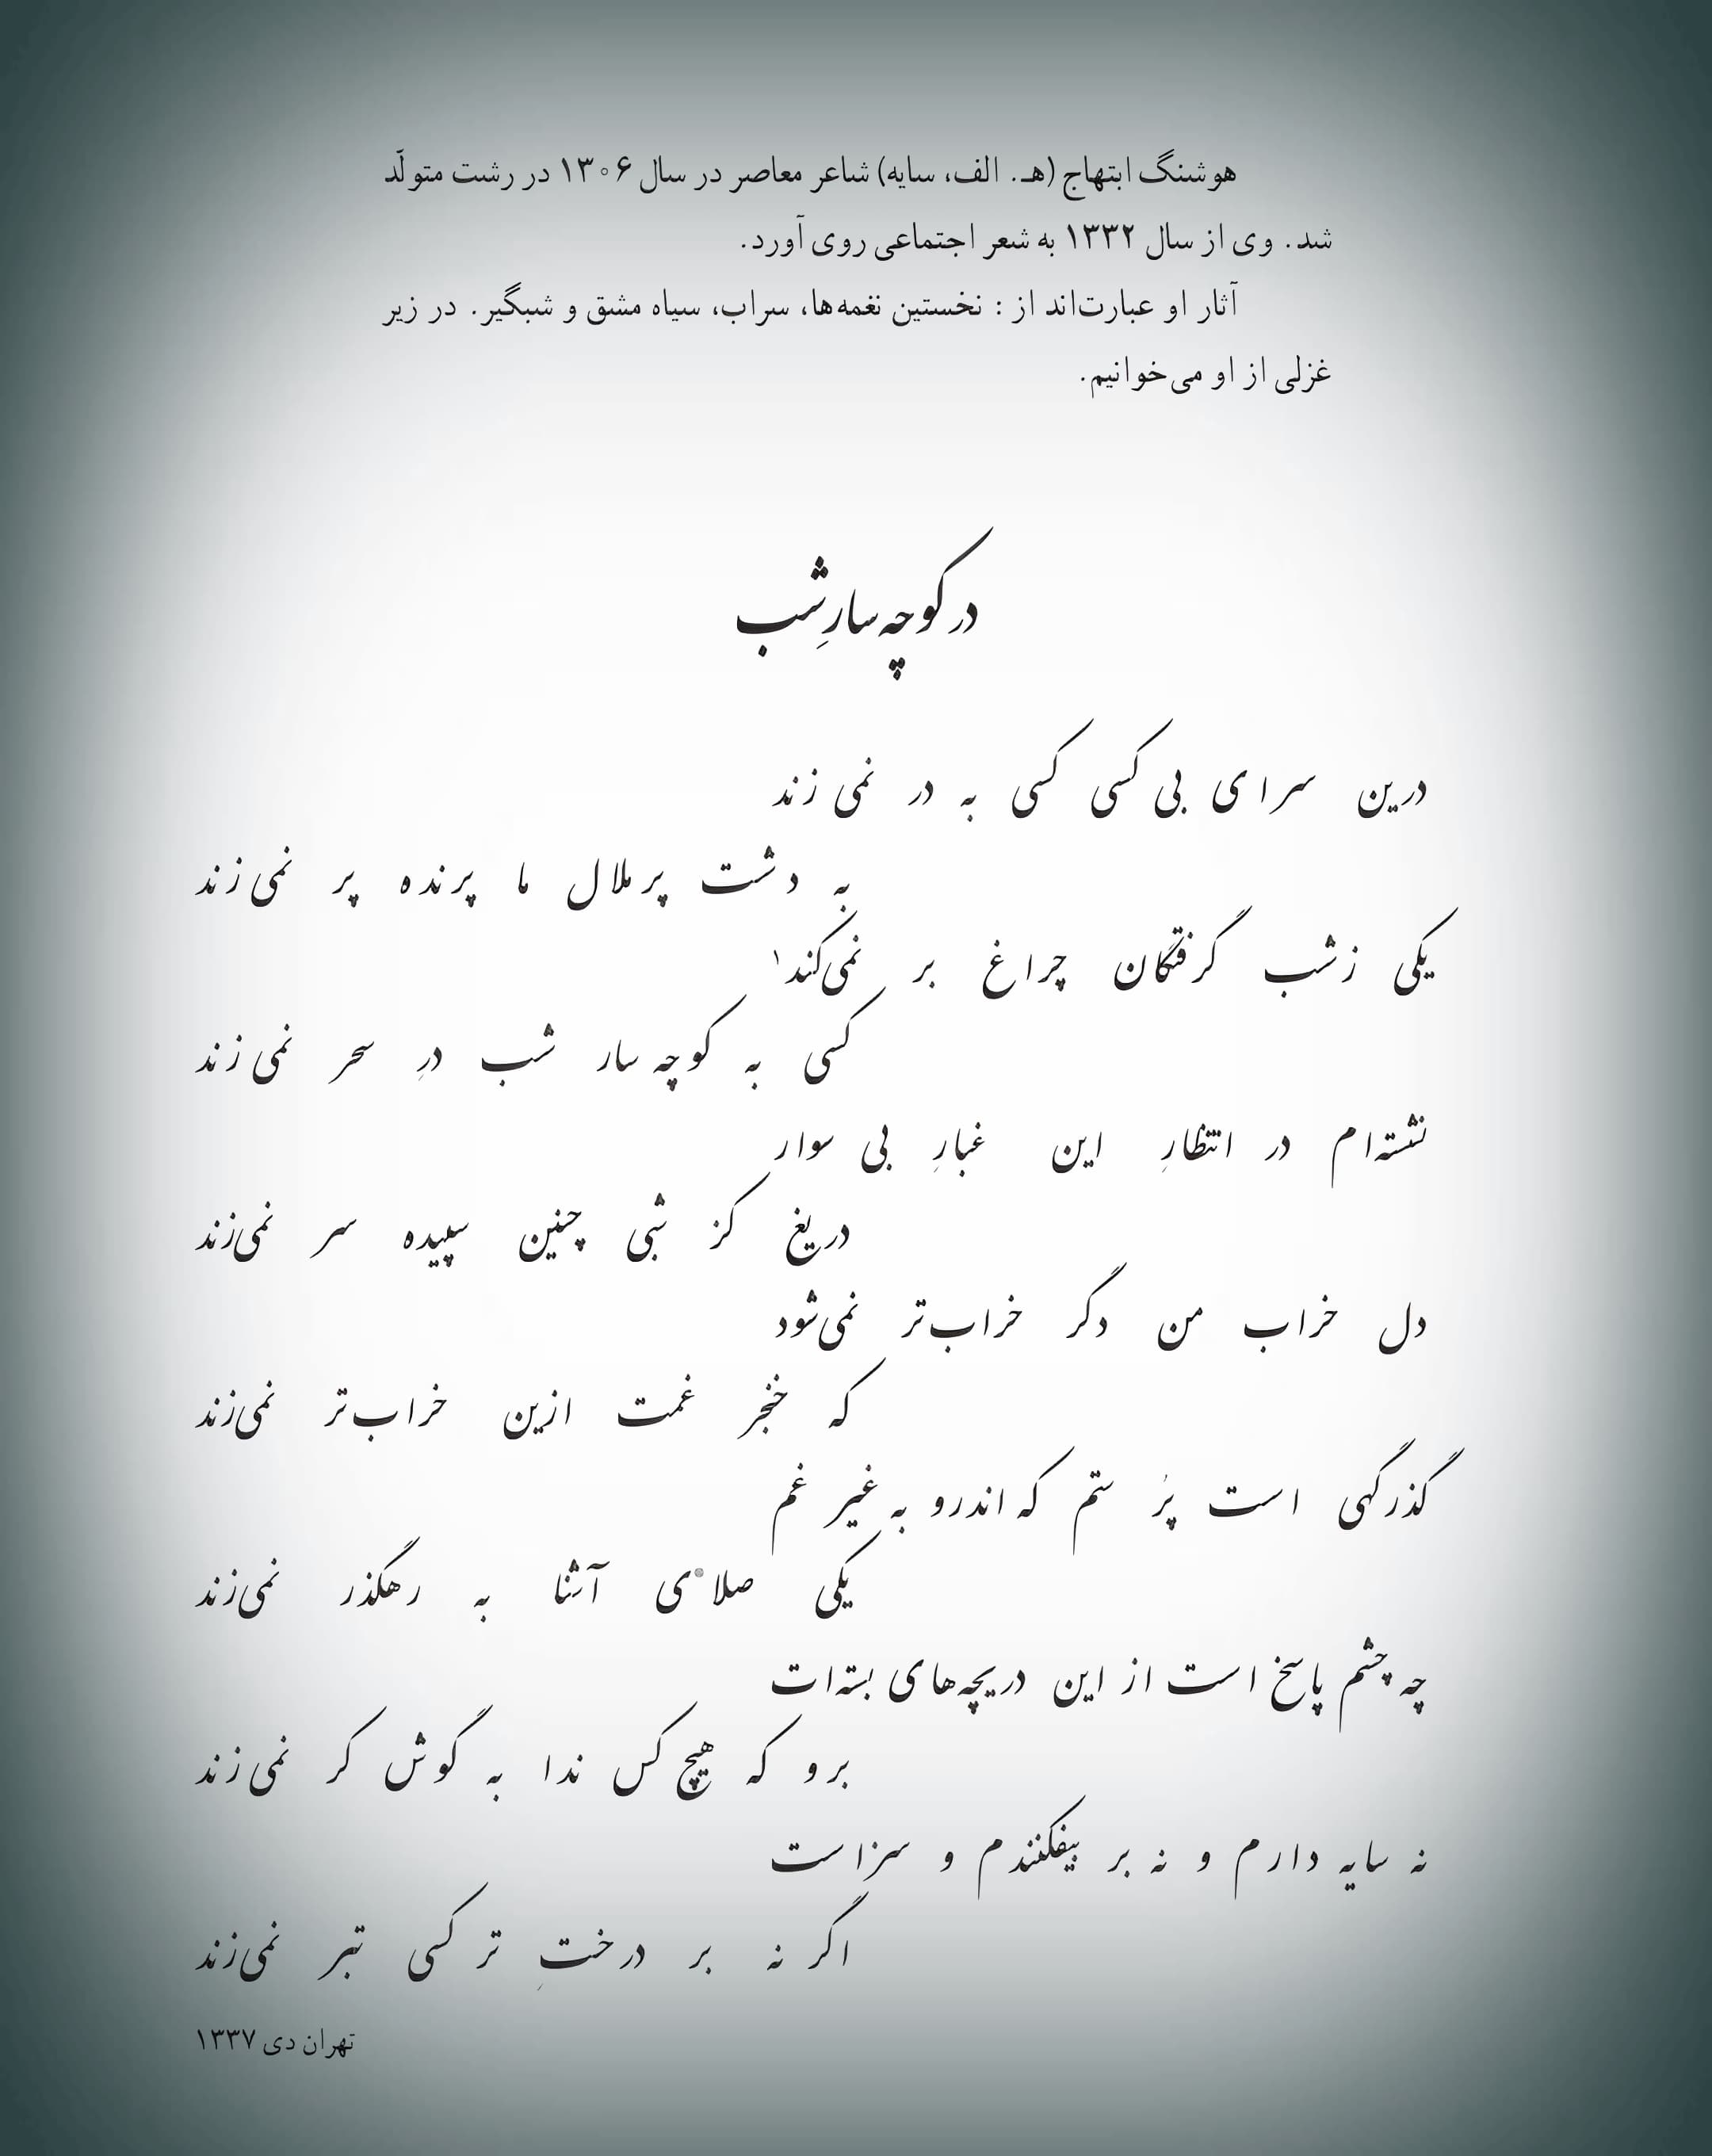 هوشنگ ابتهاج (هـ. الف، سایه) شاعر معاصر در سال ۱۳۰۶ در رشت متولّد
شد. وی از سال ۱۳۳۲ به شعر اجتماعی روی آورد.
آثار او عبارت‌اند از : نخستین نغمه‌ها، سراب، سیاه مشق و شبگیر. در زیر
غزلی از او می‌خوانیم.
در کوچه‌سارِ شب
درین سرای بی‌کسی کسی به در نمی‌زند
به دشت پرملال ما پرنده پر نمی‌زند
یکی زشب گرفتگان چراغ بر نمی‌کند۱
کسی به کوچه‌سار شب درِ سحر نمی‌زند
نشسته‌ام در انتظارِ این غبارِ بی سوار
دریغ کز شبی چنین سپیده سر نمی‌زند
دل خراب من دگر خراب‌تر نمی‌شود
که خنجر غمت ازین خراب‌تر نمی‌زند
گذرگهی است پُر ستم که اندرو به غیر غم
یکی صلای آشنا به رهگذر نمی‌زند
چه چشم پاسخ است از این دریچه‌های بسته‌ات
برو که هیچ کس ندا به گوش کر نمی‌زند
نه سایه دارم و نه بر بیفکنندم و سزاست
اگر نه بر درختِ تر کسی تبر نمی‌زند
تهران دی ۱۳۳۷